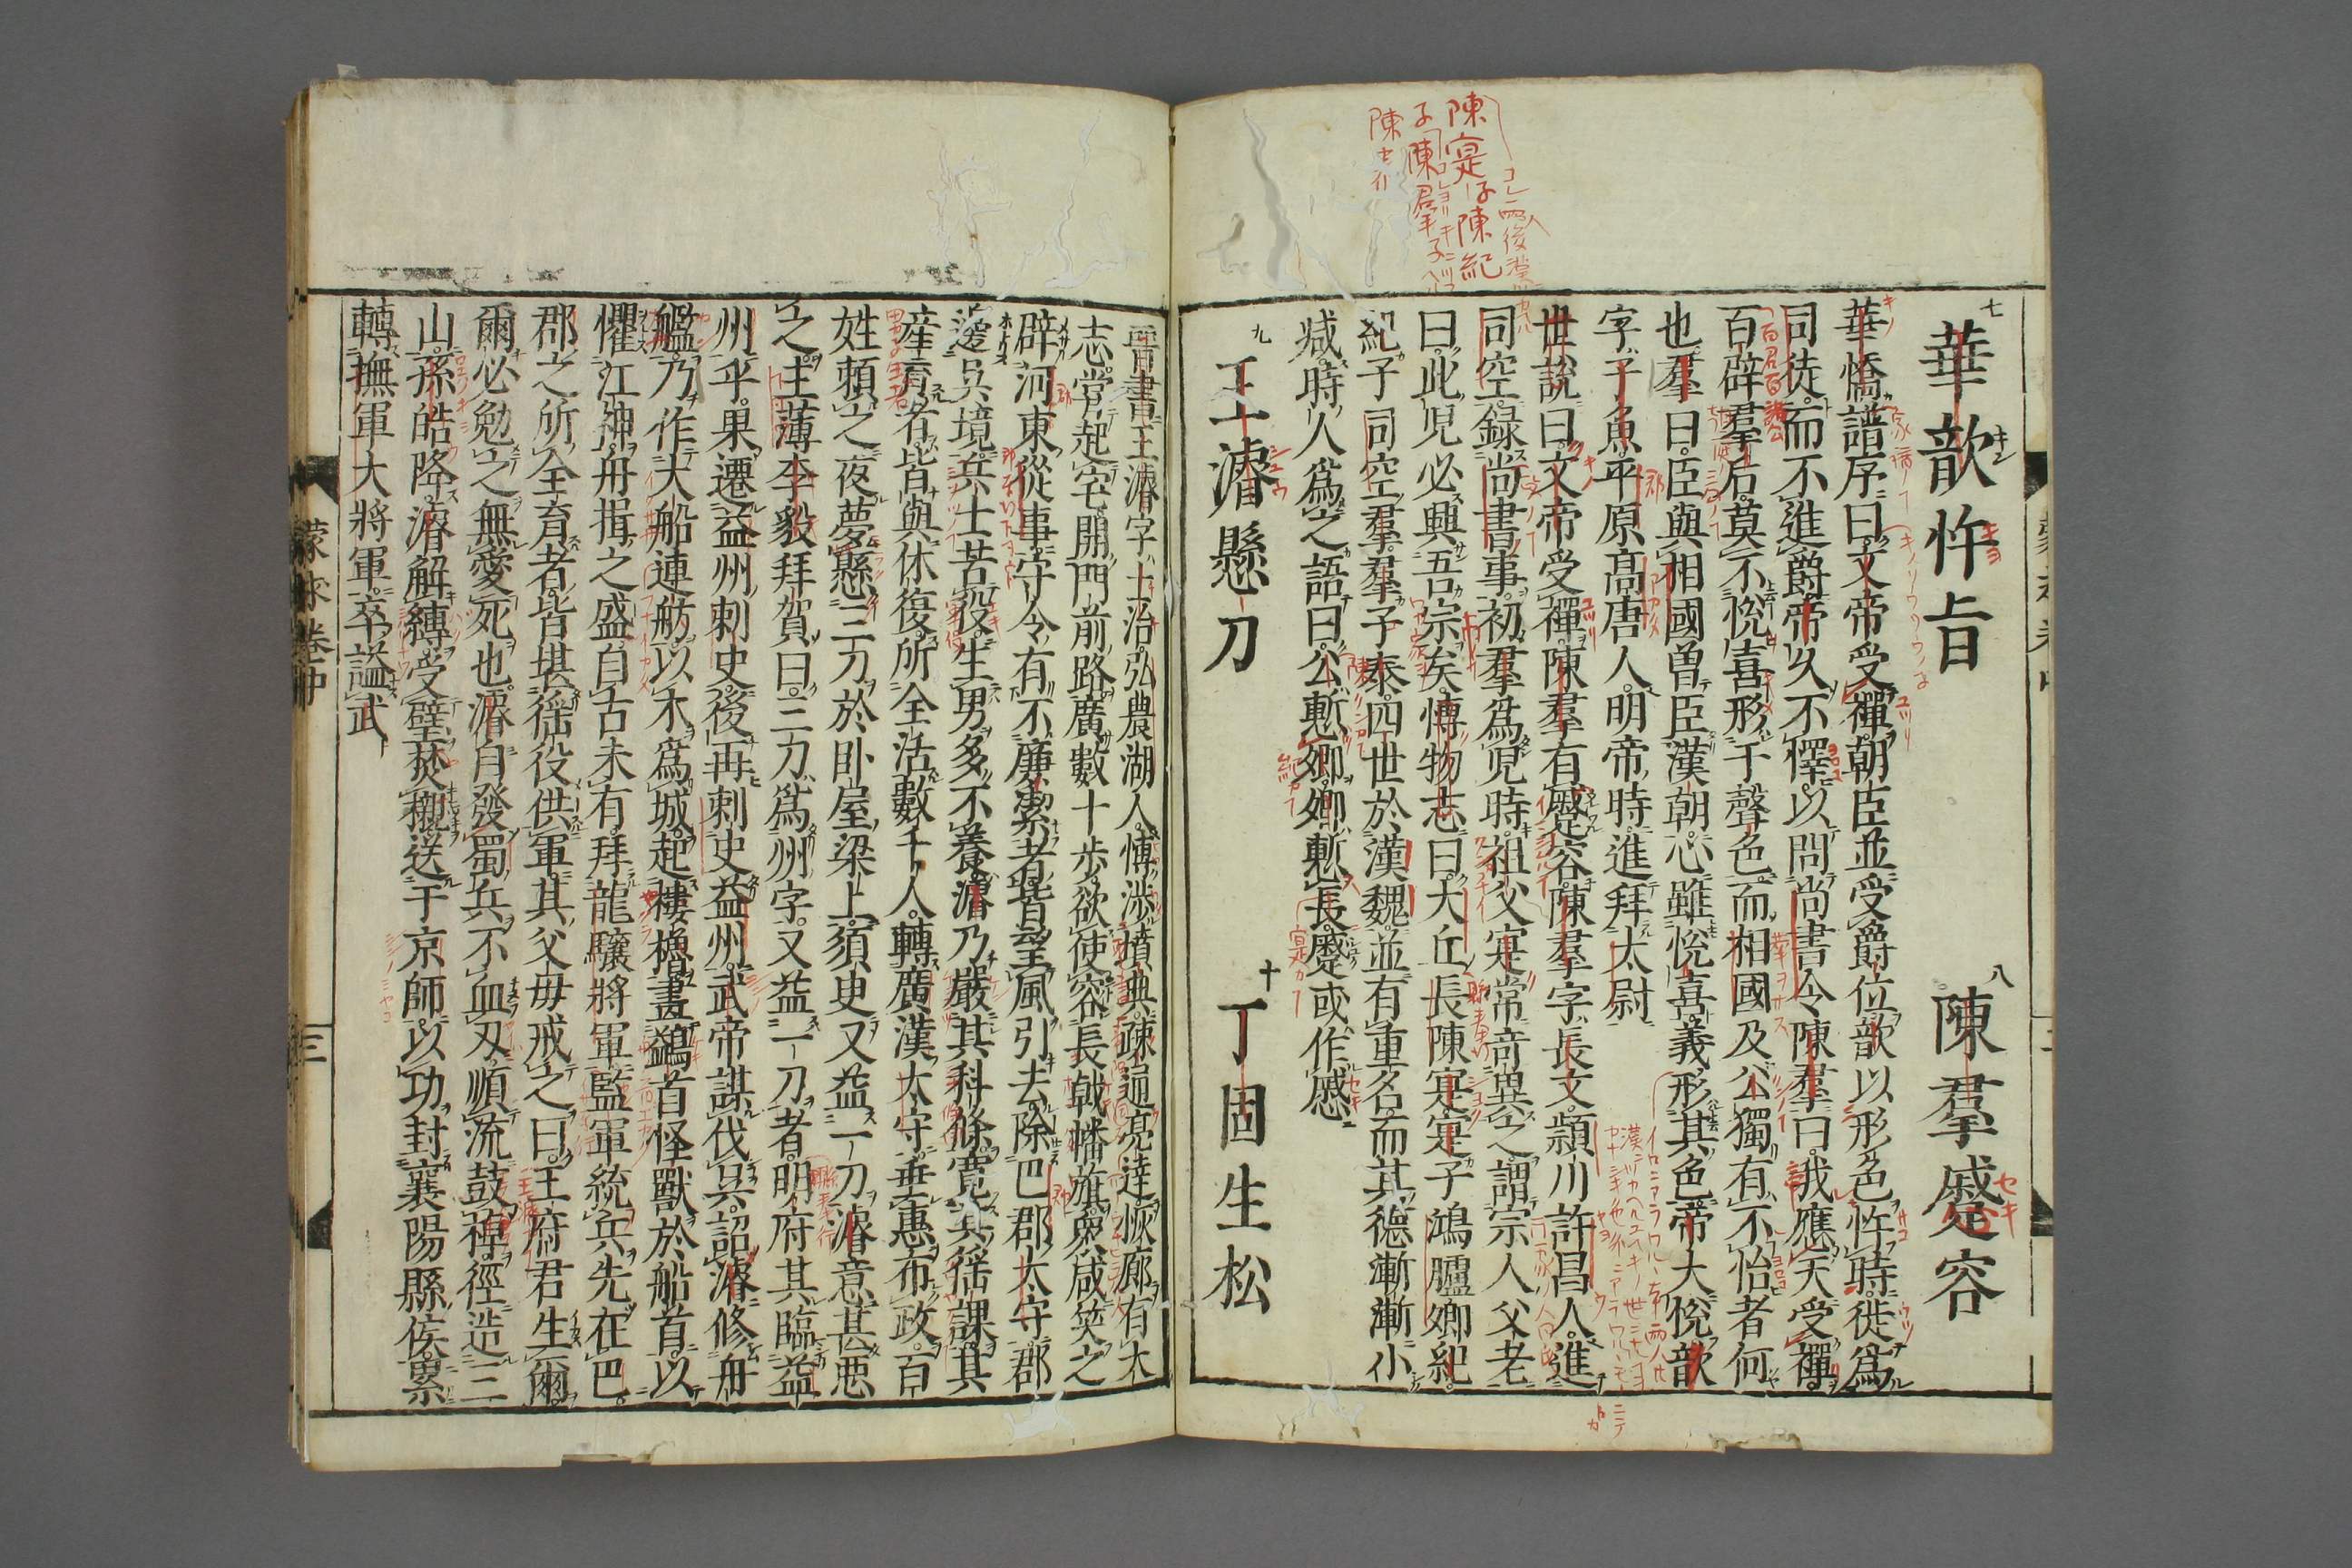 七 華歆忤旨 八 陳羣蹙容
華嶠譜序曰文帝受禪朝臣並受爵位歆以形色忤時徙爲
司徒而不進爵帝久不懌以問尚書令陳羣曰我應天受禪
百辟羣后莫不悅喜形于聲色而相國及公獨有不怡者何
也羣曰臣與相國曽臣漢朝心雖悅喜義形其色帝大悅歆
字子魚平原髙唐人明帝時進拜太尉
世說曰文帝受禪陳羣有蹙容陳羣字長文潁川許昌人進
司空録尚書事初羣爲兒時祖父寔常竒異之謂宗人父老
曰此兒必興吾宗矣博物志曰大丘長陳寔寔子鴻臚卿紀
紀子司空羣羣子泰四世於漢魏並有重名而其德漸漸小
减時人爲之語曰公慙卿卿慙長蹙或作慼
九 王濬懸刀 十 丁固生松
晉書王濬字士治弘農湖人博涉墳典疎通亮達恢廓有大
志甞起宅開門前路廣數十歩欲使容長戟幡旗衆咸笑之
辟河東從事守令有不廉潔者皆望風引去除巴郡太守郡
邊吳境兵士苦役生男多不養濬乃嚴其科條寛其徭課其
産育者皆與休復所全活數千人轉廣漢太守垂惠布政百
姓頼之夜夢懸三刀於卧屋梁上須臾又益一刀濬意甚惡
之主薄李毅拜賀曰三刀爲州字又益一刀者明府其臨益
州乎果遷益州刺史後再刺史益州武帝謀伐吳詔濬修舟
艦乃作大船連舫以木爲城起樓櫓畫鷁首怪獸於船首以
懼江神舟揖之盛自古未有拜龍驤將軍監軍統兵先在巴
郡之所全育者皆堪徭役供軍其父母戒之曰王府君生爾
爾必勉之無愛死也濬自發蜀兵不血刃順流鼓棹徑造三
山孫皓降濬解縛受璧焚櫬送于京師以功封襄陽縣侯累
轉撫軍大將軍卒謚武
蒙求卷中
三